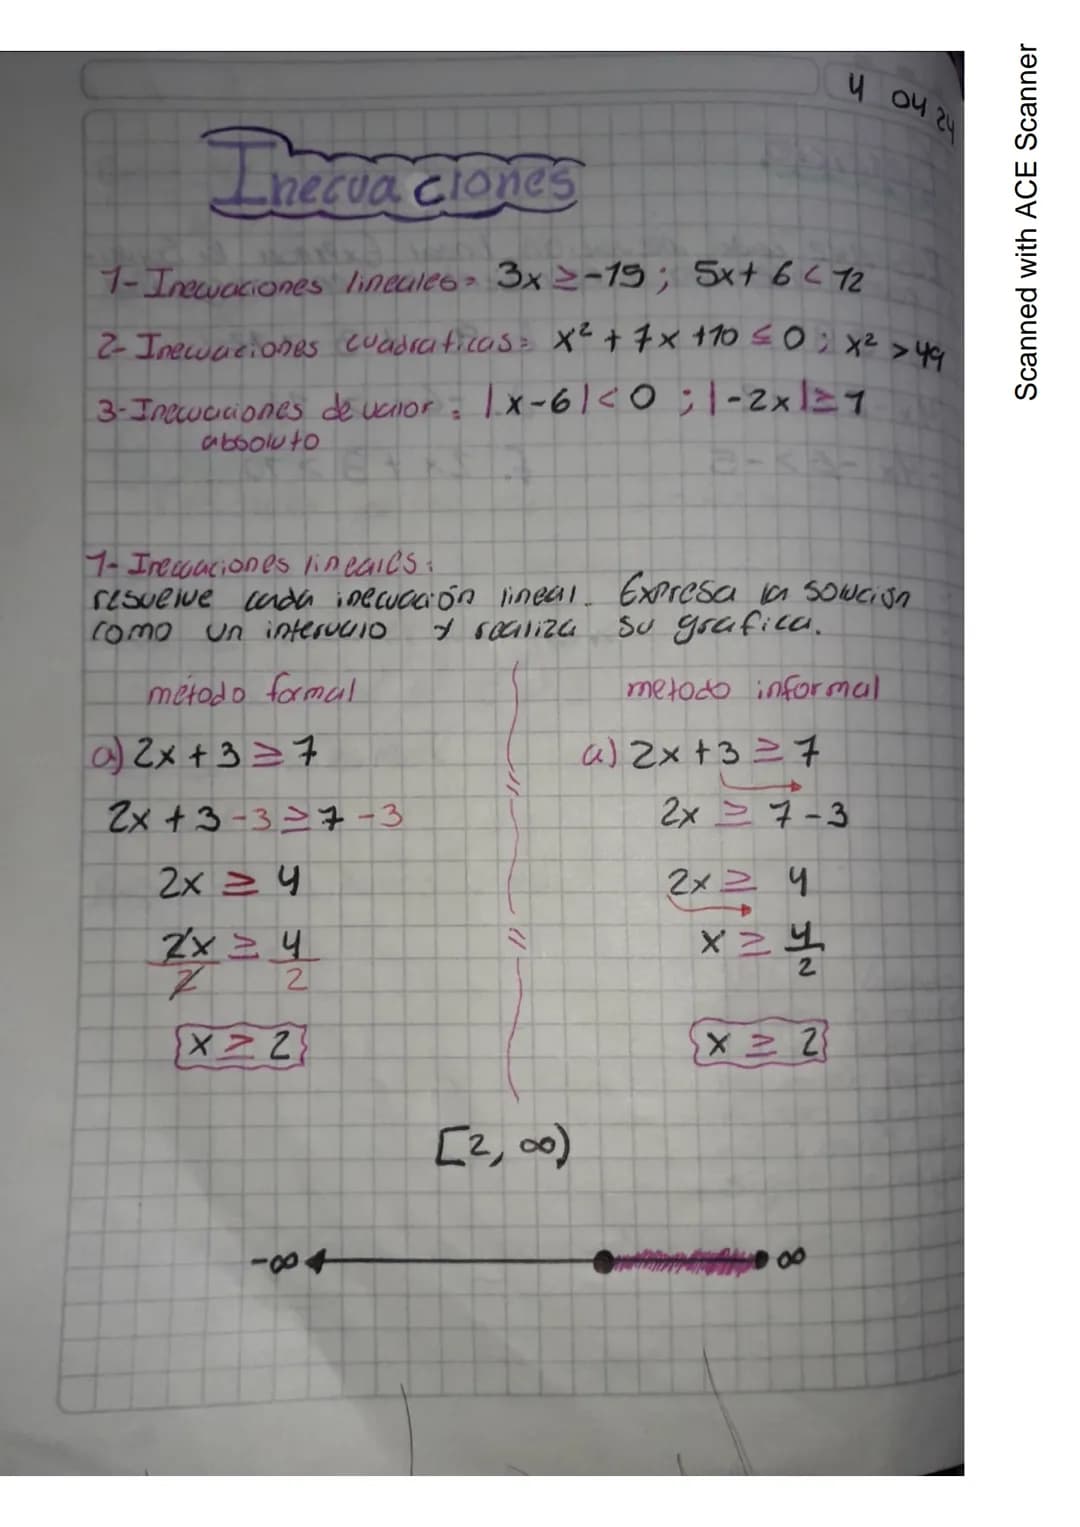 4 04 24
Inecuaciones
1- Inecuaciones lineales: 3x ≥ -15; 5x + 6 < 12
2- Inecuaciones cuadraticas: x² + 7x + 10 ≤ 0; x² > 49
3- Inecuaciones de valor: |x-6| < 0; |-2x| ≥ 1
absoluto
1- Inecuaciones lineales:
resuelve cada inecuación lineal. Expresa la solución
como un intervalo y realiza su grafica.
método formal
a) 2x + 3 ≥ 7
2x + 3 - 3 ≥ 7 - 3
2x ≥ 4
2x ≥ 4
2 2
x ≥ 2
metodo informal
a) 2x + 3 ≥ 7
2x ≥ 7 - 3
2x ≥ 4
x ≥ 4
2
x ≥ 2
[2, ∞)
-∞ ∞
Scanned with ACE Scanner